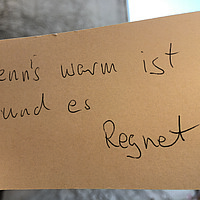 enn's warm ist
und es
Regnet